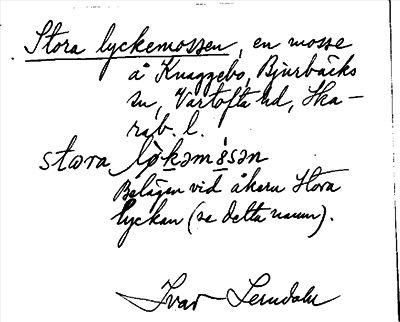 Stora lyckemossen, en mosse
å Knaggebo, Bjurbäcks
sn, Vartofta hd, Ska-
rab. l.
stωra lø̀kəmɔ̀sən
Belägen vid åkern Stora
lyckan (se detta namn).
Ivar Lerndahl